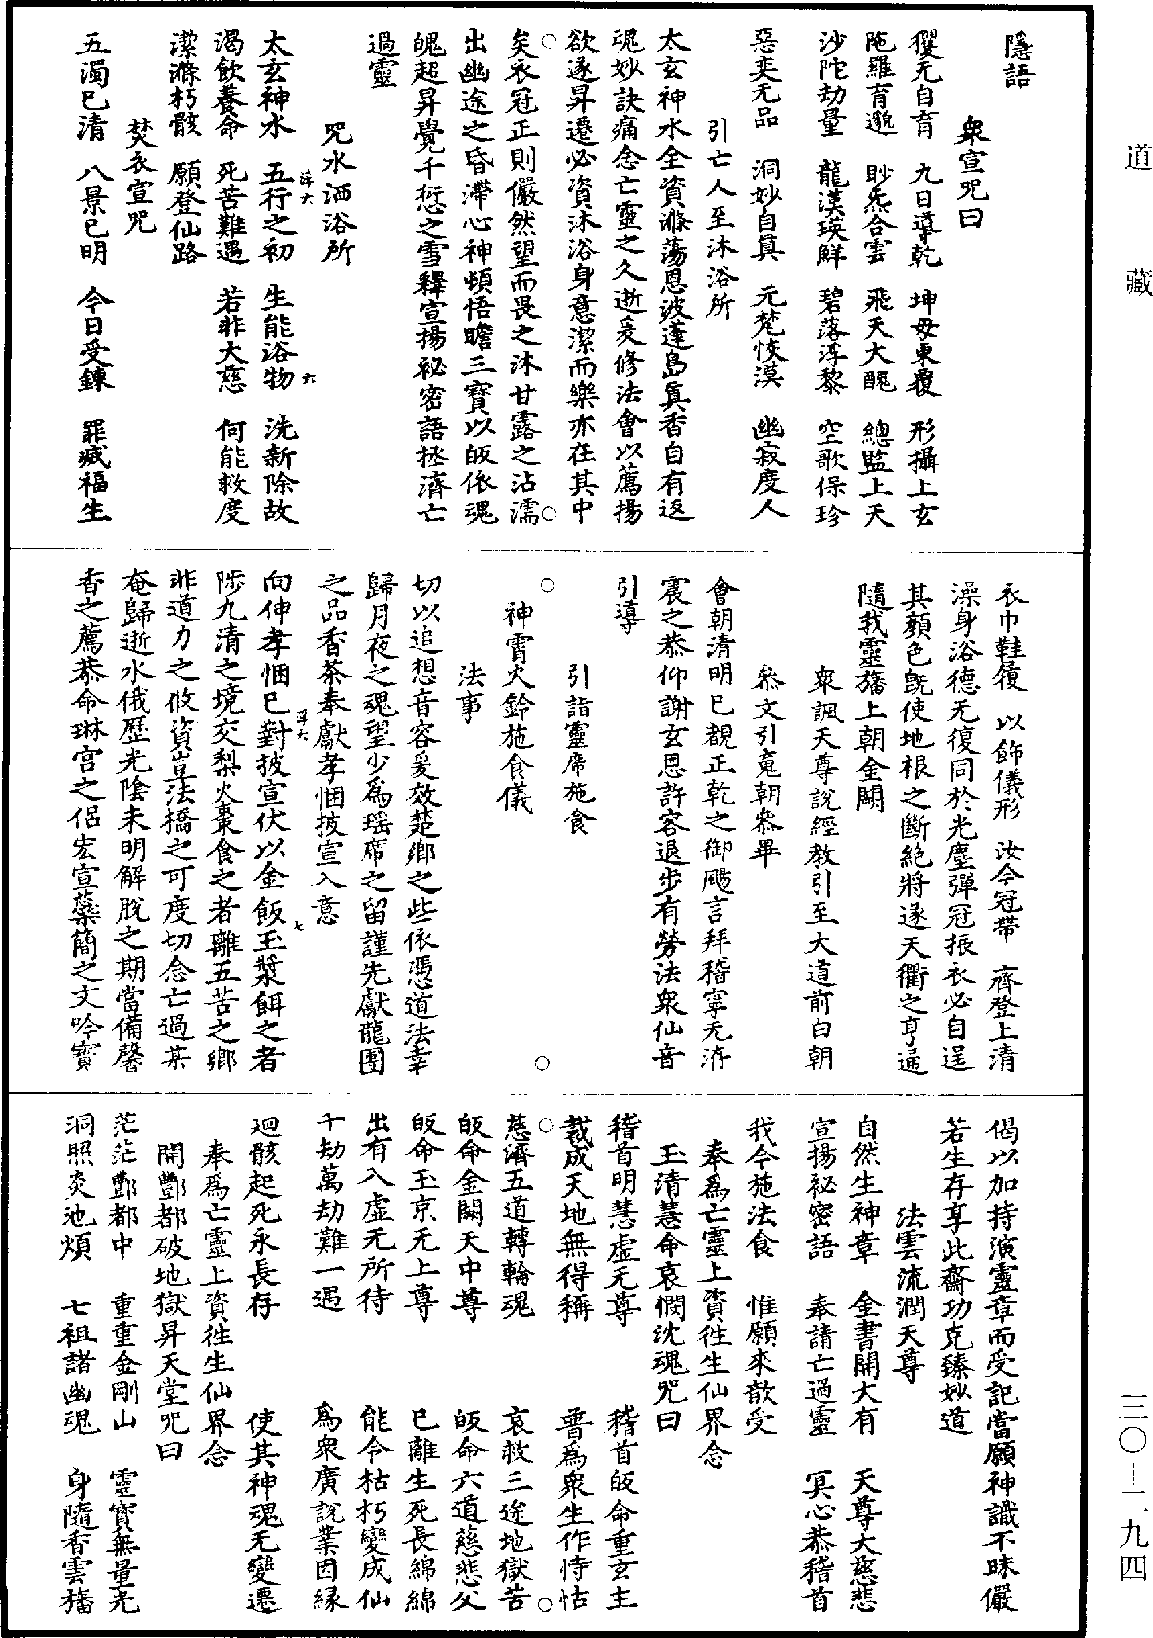 道藏
三〇—一九四
隱語
衆宣咒曰
玃无自育　九日導乾　坤母東覆　形攝上玄
陁羅育邈　眇炁合雲　飛天大醜　總監上天
沙陀劫量　龍漢瑛鮮　碧落浮黎　空歌保珍
惡奕无品　洞妙自眞　元梵恢漠　幽寂度人
引亡人至沐浴所
太玄神水全資滌蕩恩波蓬島眞香自有返
魂妙訣痛念亡靈之久逝爰修法會以薦揚
欲遂昇遷必資沐浴身意潔而樂亦在其中
矣衣冠正則儼然望而畏之沐甘露之沾濡
出幽途之昏滯心神頓悟瞻三寶以皈依魂
魄超昇覺千愆之雪釋宣揚祕密語拯濟亡
過靈
咒水洒浴所
太玄神水　五行之初　生能浴物　洗新除故
渴飲養命　死苦難遇　若非大慈　何能救度
潔滌朽骸　願登仙路
焚衣宣咒
五濁已清　八景已明　今日受鍊　罪滅福生
衣巾鞋履　以飾儀形　汝今冠帶　齊登上清
澡身浴德无復同於光塵彈冠振衣必自逞
其顏色旣使地根之斷絕將遂天衢之亨通
隨我靈旛上朝金闕
衆諷天尊說經教引至大道前白朝
叅文引竟朝叅畢
會朝清明已覩正乾之御颺言拜稽寧无洊
宸之恭仰謝玄恩許容退步有勞法衆仙音
引導
引詣靈席施食
神霄火鈴施食儀
法事
切以追想音容爰效楚鄉之些依憑道法幸
歸月夜之魂望少爲瑶席之留謹先獻龍團
之品香茶奉獻孝悃披宣入意
向伸孝悃已對披宣伏以金飯玉漿餌之者
陟九清之境交梨火棗食之者離五苦之鄉
非道力之攸資豈法橋之可度切念亡過某
奄歸逝水俄歷光陰未明解脫之期當備馨
香之薦恭命琳宫之侶宏宣蘂簡之文吟寶
偈以加持演靈章而受記當願神識不昧儼
若生存享此齋功克臻妙道
法雲流潤天尊
自然生神章　金書開大有　天尊大慈悲
宣揚祕密語　奉請亡過靈　冥心恭稽首
我今施法食　惟願來歆受
奉爲亡靈上資徃生仙界念
玉清慧命哀憫沈魂咒曰
稽首明慧虛无尊　稽首皈命重玄主
裁成天地無得稱　普爲衆生作恃怙
慈濟五道轉輪魂　哀救三途地獄苦
皈命金闕天中尊　皈命六道慈悲父
皈命玉京无上尊　已離生死長綿綿
出有入虛无所待　能令枯朽變成仙
千劫萬劫難一遇　爲衆廣說業因緣
迴骸起死永長存　使其神魂无變遷
奉爲亡靈上資徃生仙界念
開酆都破地獄昇天堂咒曰
茫茫酆都中　重重金剛山　靈寶無量光
洞照炎池煩　七祖諸幽魂　身隨香雲旛